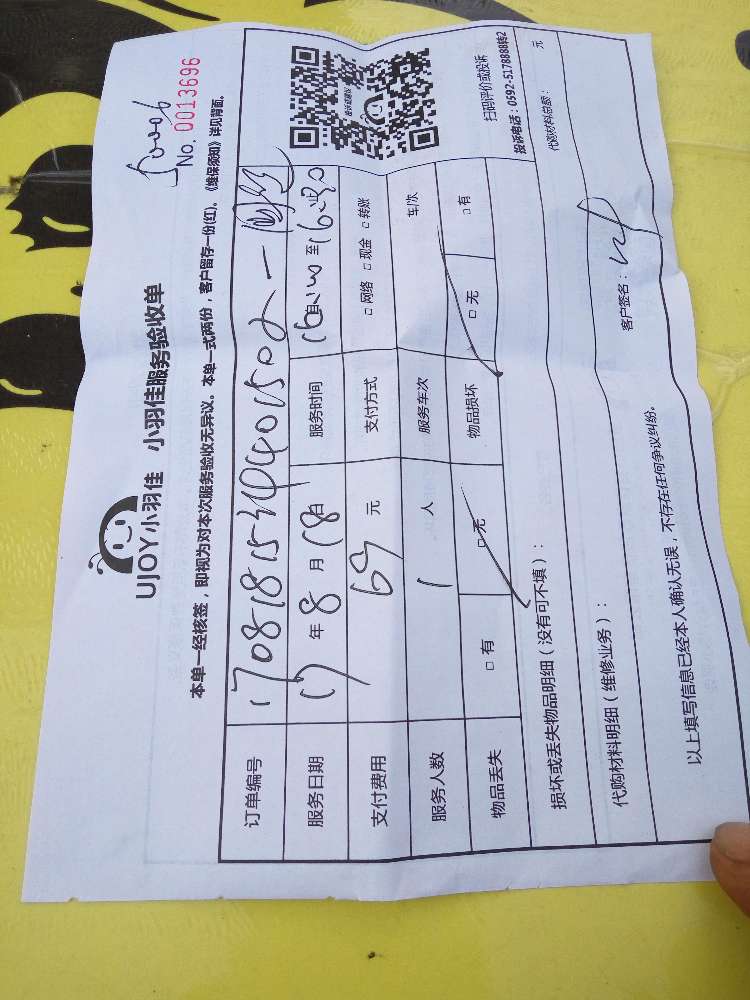 UJOY小羽佳 小羽佳服务验收单
No. 0013696
本单一经核签，即视为对本次服务验收无异议。本单一式两份，客户留存一份(红)。《维保须知》详见背面。
订单编号
服务日期 17 年 8 月 18 日 服务时间 至
支付费用 69 元 支付方式 □ 网络 □ 现金 □ 转账
服务人数 1 人 服务车次 车/次
物品丢失 □ 有 □ 无 物品损坏 □ 无 □ 有
扫码评价或投诉
投诉电话：0592-5178888转2
损坏或丢失物品明细（没有可不填）：
代购材料明细（维修业务）： 代购材料总额： 元
以上填写信息已经本人确认无误，不存在任何争议纠纷。
客户签名：